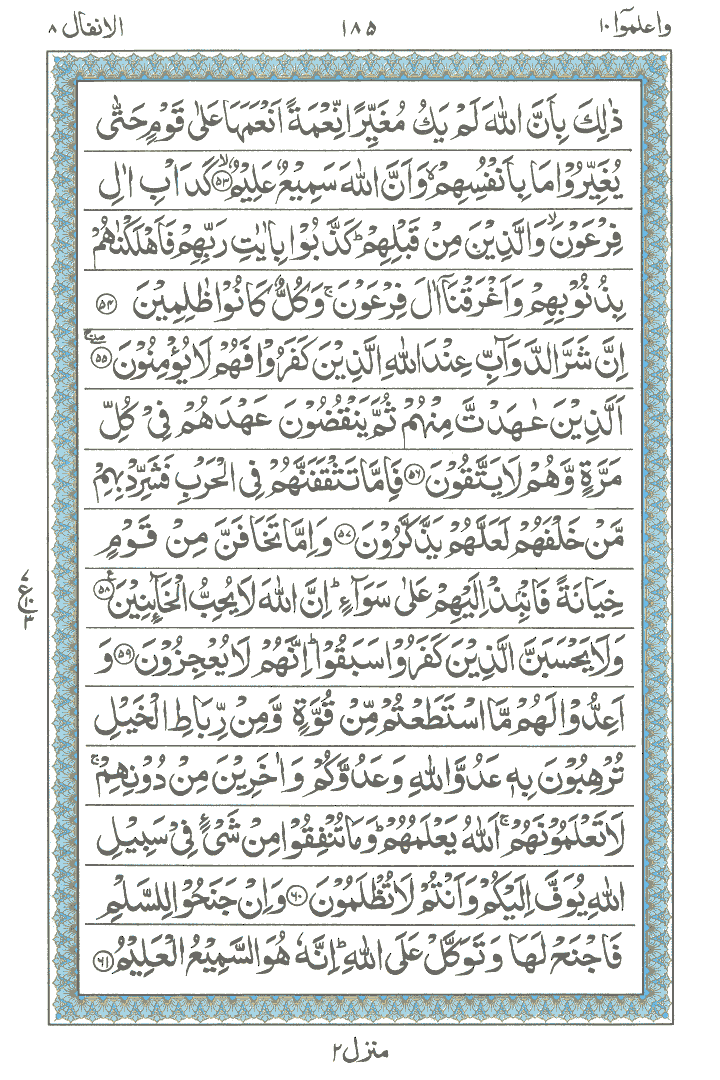 واعلموٓا ١٠ ١٨٥ الانفال ٨
ذٰلِكَ بِاَنَّ اللّٰهَ لَمْ يَكُ مُغَيِّرًا نِّعْمَةً اَنْعَمَهَا عَلٰى قَوْمٍ حَتّٰى
يُغَيِّرُوْا مَا بِاَنْفُسِهِمْ ۙ وَاَنَّ اللّٰهَ سَمِيْعٌ عَلِيْمٌ ۙ‏﴿۵۳﴾ كَدَاْبِ اٰلِ
فِرْعَوْنَ ۙ وَالَّذِيْنَ مِنْ قَبْلِهِمْ ؕ كَذَّبُوْا بِاٰيٰتِ رَبِّهِمْ فَاَهْلَكْنٰهُمْ
بِذُنُوْبِهِمْ وَاَغْرَقْنَاۤ اٰلَ فِرْعَوْنَ ۚ وَكُلٌّ كَانُوْا ظٰلِمِيْنَ ﴿۵۴﴾
اِنَّ شَرَّ الدَّوَآبِّ عِنْدَ اللّٰهِ الَّذِيْنَ كَفَرُوْا فَهُمْ لَا يُؤْمِنُوْنَ ۖۚ ﴿۵۵﴾
اَلَّذِيْنَ عٰهَدْتَّ مِنْهُمْ ثُمَّ يَنْقُضُوْنَ عَهْدَهُمْ فِيْ كُلِّ
مَرَّةٍ وَّهُمْ لَا يَتَّقُوْنَ ﴿۵۶﴾ فَاِمَّا تَثْقَفَنَّهُمْ فِي الْحَرْبِ فَشَرِّدْ بِهِمْ
مَّنْ خَلْفَهُمْ لَعَلَّهُمْ يَذَّكَّرُوْنَ ﴿۵۷﴾ وَاِمَّا تَخَافَنَّ مِنْ قَوْمٍ
خِيَانَةً فَانْۢبِذْ اِلَيْهِمْ عَلٰى سَوَآءٍ ؕ اِنَّ اللّٰهَ لَا يُحِبُّ الْخَآئِنِيْنَ ﴿۵۸﴾ ع
وَلَا يَحْسَبَنَّ الَّذِيْنَ كَفَرُوْا سَبَقُوْا ؕ اِنَّهُمْ لَا يُعْجِزُوْنَ ﴿۵۹﴾ وَ
اَعِدُّوْا لَهُمْ مَّا اسْتَطَعْتُمْ مِّنْ قُوَّةٍ وَّمِنْ رِّبَاطِ الْخَيْلِ
تُرْهِبُوْنَ بِهٖ عَدُوَّ اللّٰهِ وَعَدُوَّكُمْ وَاٰخَرِيْنَ مِنْ دُوْنِهِمْ ۚ
لَا تَعْلَمُوْنَهُمْ ۚ اَللّٰهُ يَعْلَمُهُمْ ؕ وَمَا تُنْفِقُوْا مِنْ شَيْءٍ فِيْ سَبِيْلِ
اللّٰهِ يُوَفَّ اِلَيْكُمْ وَاَنْتُمْ لَا تُظْلَمُوْنَ ﴿۶۰﴾ وَاِنْ جَنَحُوْا لِلسَّلْمِ
فَاجْنَحْ لَهَا وَتَوَكَّلْ عَلَى اللّٰهِ ؕ اِنَّهٗ هُوَ السَّمِيْعُ الْعَلِيْمُ ﴿۶۱﴾
منزل ٢